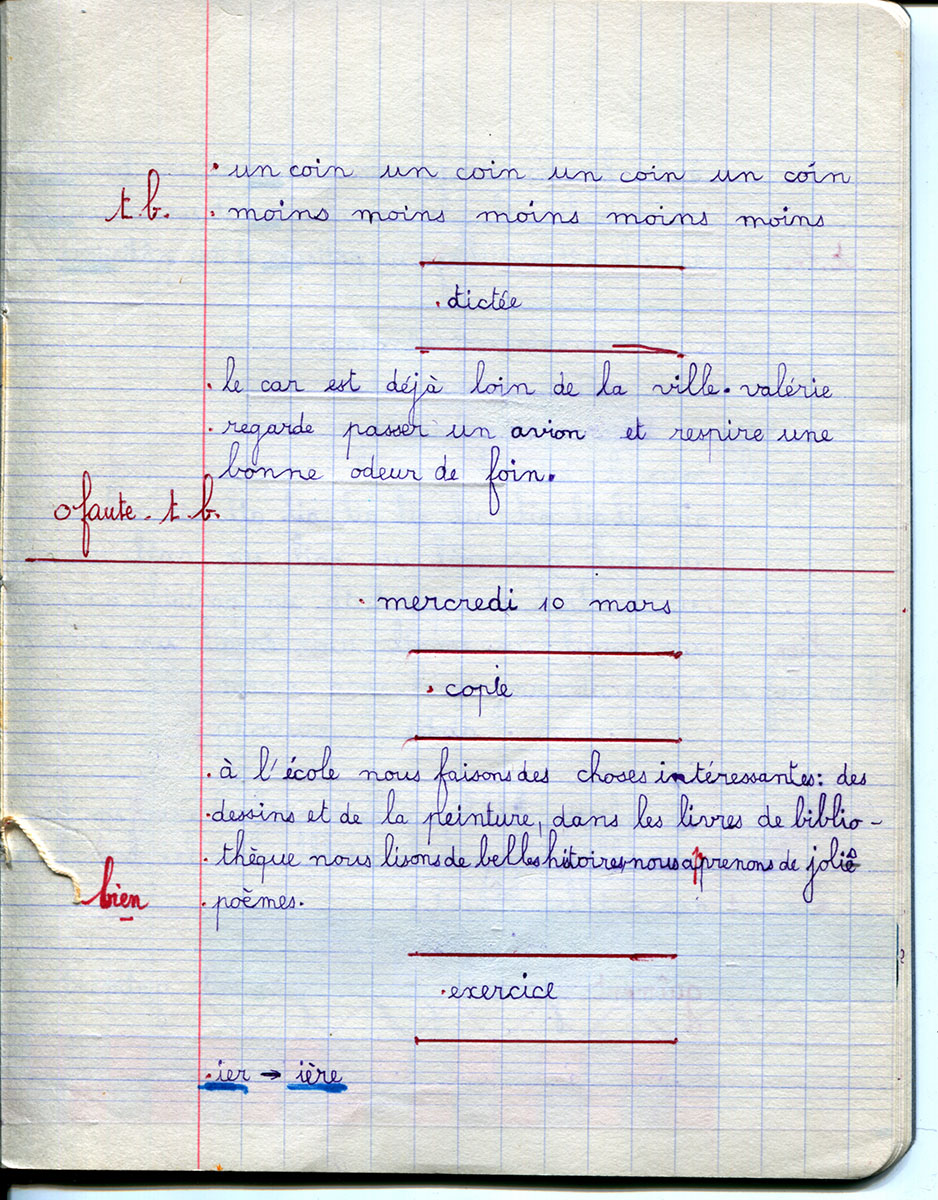 un coin un coin un coin un coin
t.b.
moins moins moins moins moins
dictée
le car est déjà loin de la ville. valérie
regarde passer un avion et respire une
bonne odeur de foin.
0 faute. t. b.
mercredi 10 mars
copie
à l'école nous faisons des choses intéressantes: des
dessins et de la peinture, dans les livres de biblio-
thèque nous lisons de belles hitoires, nous apprenons de jolie
bien
poèmes.
exercice
ier → ière